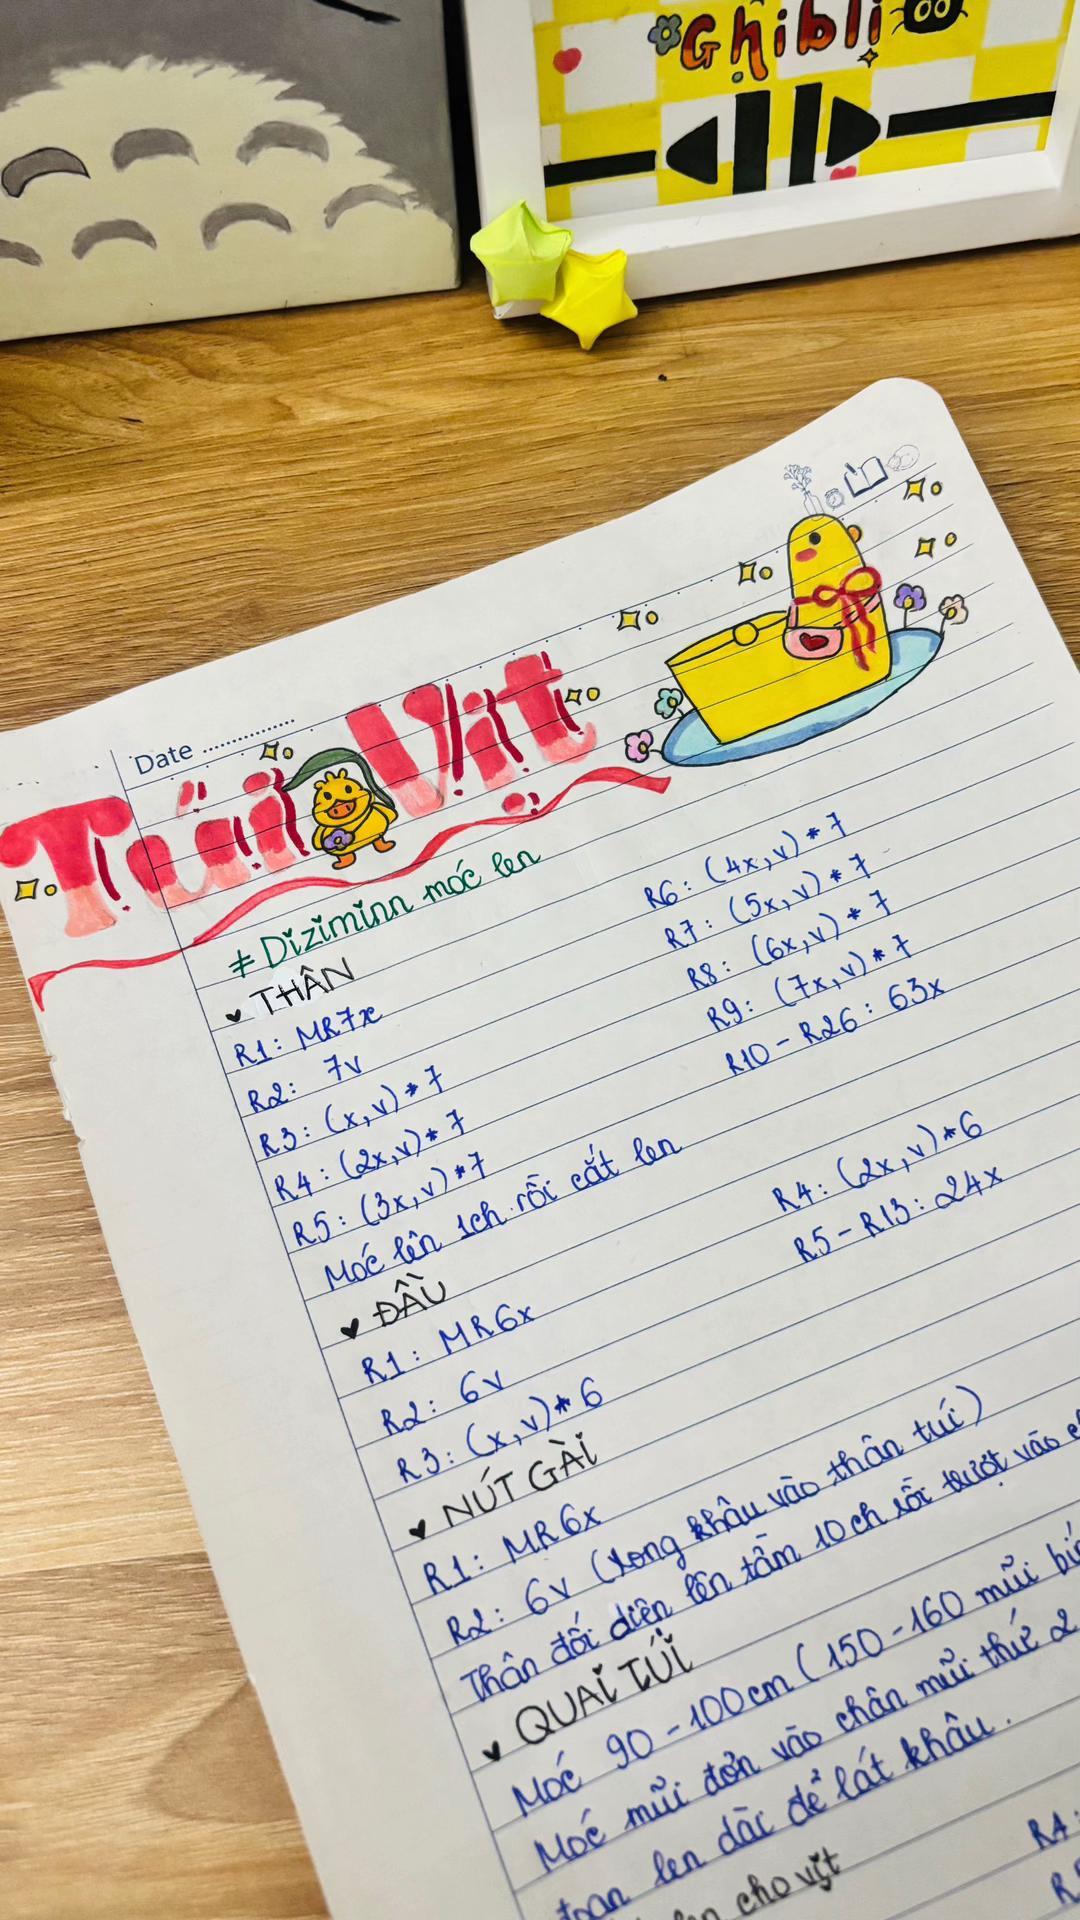 Ghibli
Date
Túi Vịt
# Diziminn móc len
THÂN
R1: MR7x
R2: 7v
R3: (x,v)*7
R4: (2x,v)*7
R5: (3x,v)*7
R6: (4x,v)*7
R7: (5x,v)*7
R8: (6x,v)*7
R9: (7x,v)*7
R10-R26: 63x
Móc lên 1ch rồi cắt len
ĐẦU
R1: MR6x
R2: 6v
R3: (x,v)*6
R4: (2x,v)*6
R5-R13: 24x
NÚT GÀI
R1: MR6x
R2: 6v (xong khâu vào thân túi)
Thân đối diện lên tầm 10ch rồi trượt vào
QUAI TÚI
Móc 90-100cm (150-160 mũi
Móc mũi đơn vào chân mũi thứ 2
len dài để lát khâu.
cho vịt